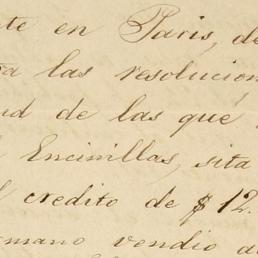 te en Paris, de
ra las resolucion
ud de las que
Encinillas, sita
l credito de $ 12.
rmano vendio a